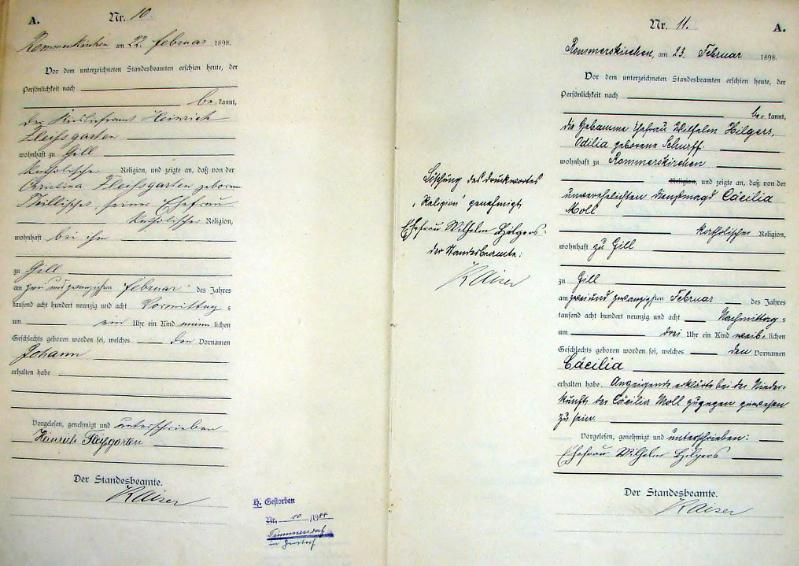 A.
Nr. 10
Rommerskirchen am 22. Februar 1898.
Vor dem unterzeichneten Standesbeamten erschien heute, der
Persönlichkeit nach
be kannt,
der Heinrich
Fleischgarten
wohnhaft zu Gill
katholischer Religion, und zeigte an, daß von der
Christina Fleischgarten geborene
seiner Ehefrau
katholischer Religion,
wohnhaft bei ihm
zu Gill
am zwei und zwanzigsten Februar des Jahres
tausend acht hundert neunzig und acht Vormittag s
um ein Uhr ein Kind männ lichen
Geschlechts geboren worden sei, welches den Vornamen
Johann
erhalten habe
Vorgelesen, genehmigt und unterschrieben
Heinrich
Der Standesbeamte.
Kaiser
H. Gestorben
Nr.
Löschung des Druckwortes
„Religion" genehmigt
Ehefrau Wilhelm Hilgers
der Standesbeamte:
Kaiser
Nr. 11.
A.
Rommerskirchen, am 23. Februar 1898.
Vor dem unterzeichneten Standesbeamten erschien heute, der
Persönlichkeit nach
be kannt,
die Hebamme Ehefrau Wilhelm Hilgers,
Odilia geborene Schurff
wohnhaft zu Rommerskirchen
Religion, und zeigte an, daß von der
unverehelichten Dienstmagd Cäcilia
Moll
katholischer Religion,
wohnhaft zu Gill
zu Gill
am zwei und zwanzigsten Februar des Jahres
tausend acht hundert neunzig und acht Nachmittag s
um drei Uhr ein Kind weib lichen
Geschlechts geboren worden sei, welches den Vornamen
Cäcilia
erhalten habe. Anzeigende erklärte bei der Nieder-
kunft der Cäcilia Moll zugegen gewesen
zu sein.
Vorgelesen, genehmigt und unterschrieben:
Ehefrau Wilhelm Hilgers
Der Standesbeamte.
Kaiser